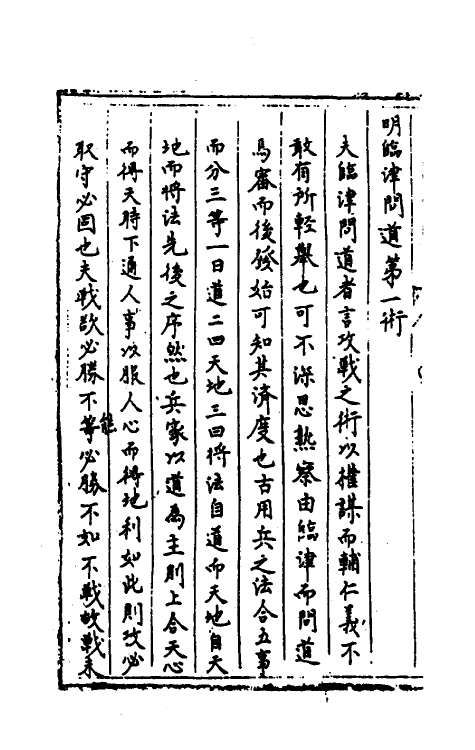 明臨津問道第一術
夫臨津問道者言攻戰之術以權謀而輔仁義不
敢有所輕舉也可不深思熟察由臨津而問道
焉審而後發始可知其濟度也古用兵之法合五事
而分三等一曰道二曰天地三曰將法自道而天地自天
地而將法先後之序然也兵家以道為主則上合天心
而得天時下通人事以服人心而得地利如此則攻必
取守必固也夫戰欲必勝不等能必勝不如不戰故戰未